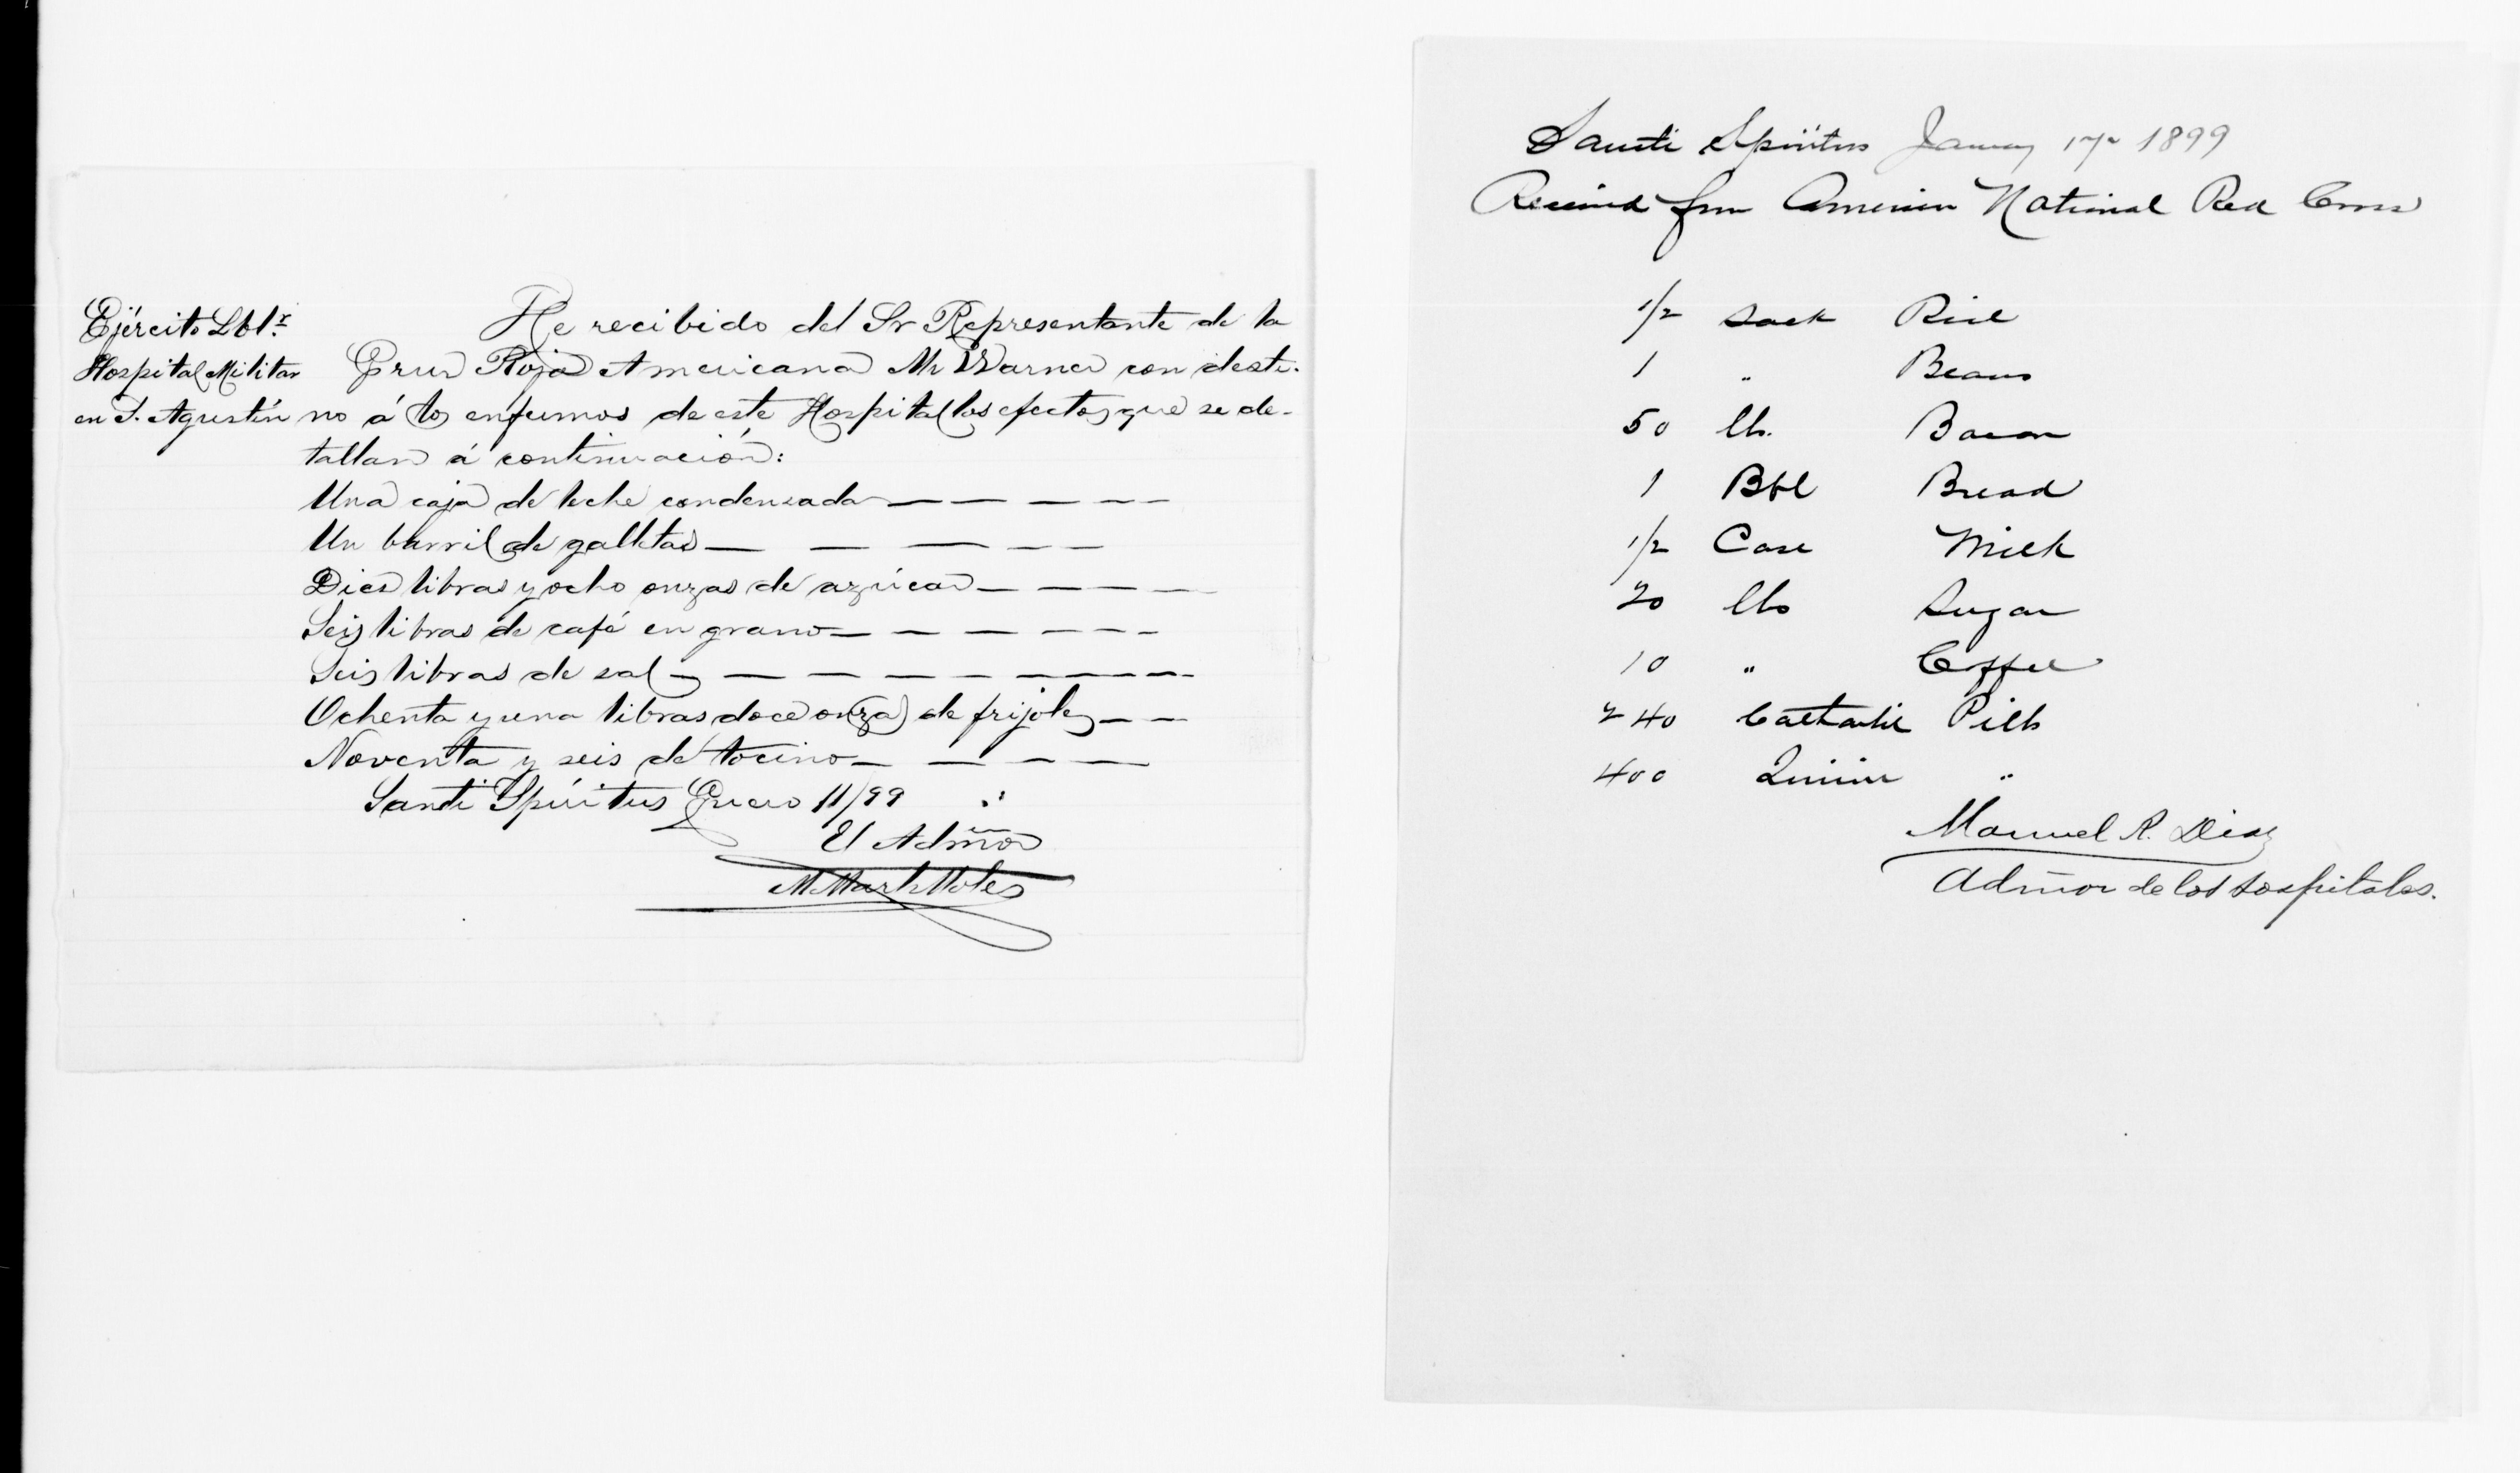 Ejército Lbt.r
Hospital Militar
en S. Agustín
He recibido del Sr Representante de la
Cruz Roja Americana Mr Warner con desti-
no á los enfermos de este Hospital los efectos que se de-
tallan á continuación:
Una caja de leche condensada — — — — —
Un barril de galletas — — — — —
Diez libras y ocho onzas de azúcar — — — — —
Seis libras de café en grano — — — — — —
Seis libras de sal — — — — — — — — —
Ochenta y una libras doce onza) de frijoles — —
Noventa y seis de tocino — — — —
Santi Spíritus Enero 11/99
El Admor
Sancti Spiritus January 17 1899
Received from American National Red Cross
1/2 Sack Rice
1 " Beans
50 lb. Bacon
1 Bbl Bread
1/2 Case Milk
20 lbs Sugar
10 " Coffee
240 Cathartic Pills
400 Quinine "
Manuel R. Diaz
Admor de los hospitales.